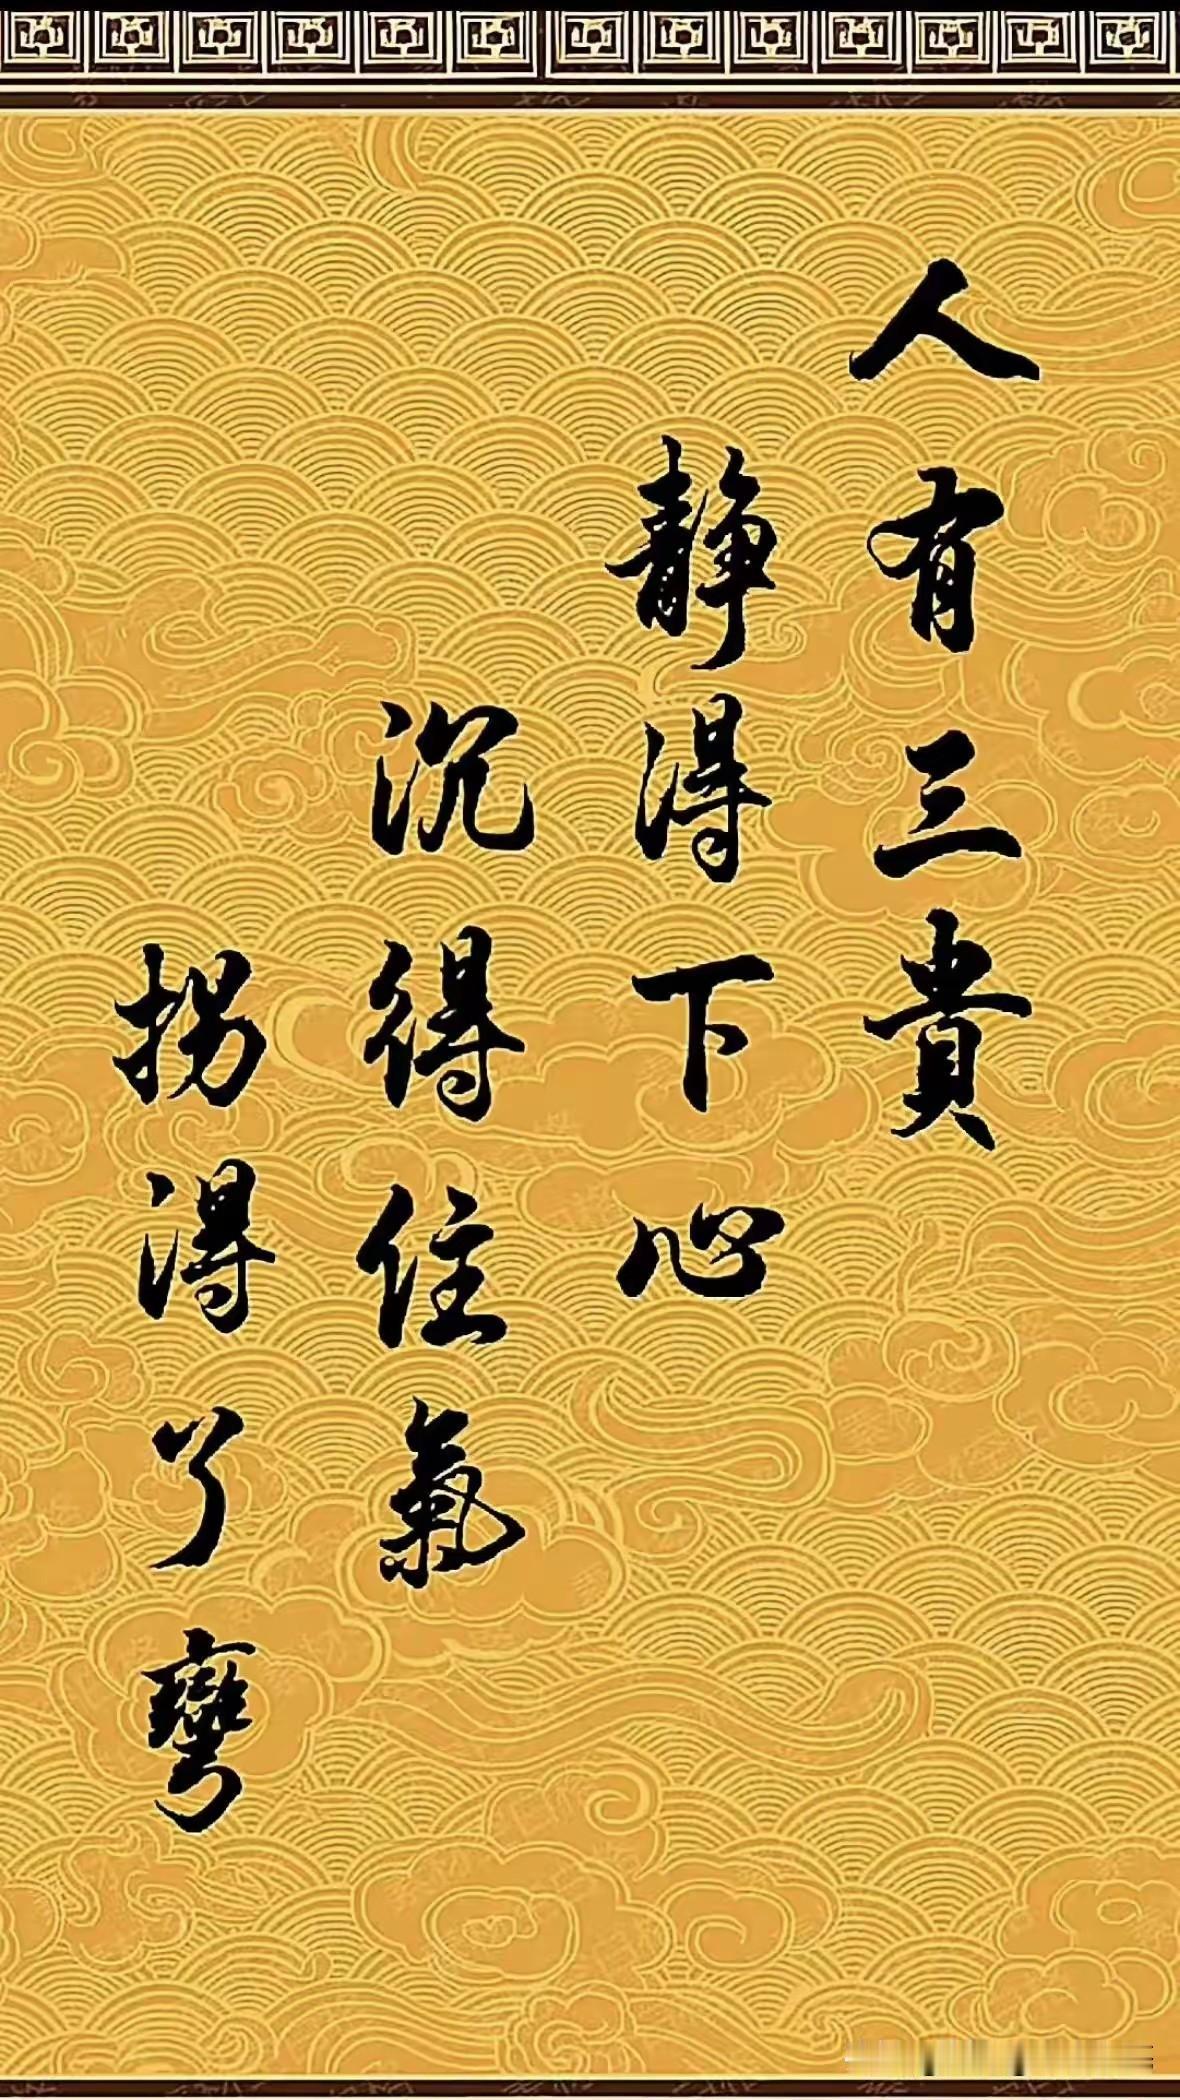 人有三貴
静得下心
沉得住氣
拐得了彎